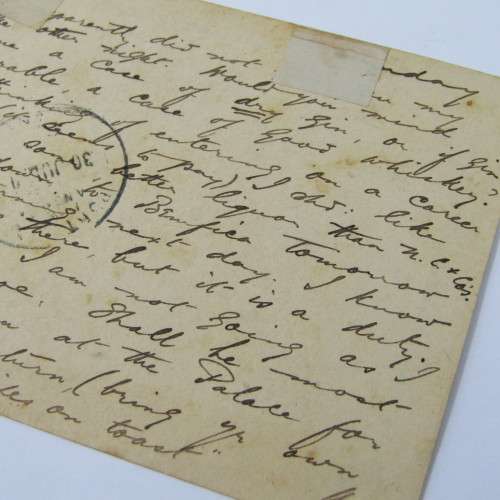 parently did not nday
other night. Would you mind
a case of dry gin, or if gin
rable, a case of good whiskey.
thinking of entering on a career
to pay, I shd. like
some better liquor than N.C & Co's.
down to Benfica tomorrow
ming next day. I know
there, but it is a duty.
I am not going as I
Shall be most
at the Palace for
turn (bring yr own
ies on toast"
30 JUN